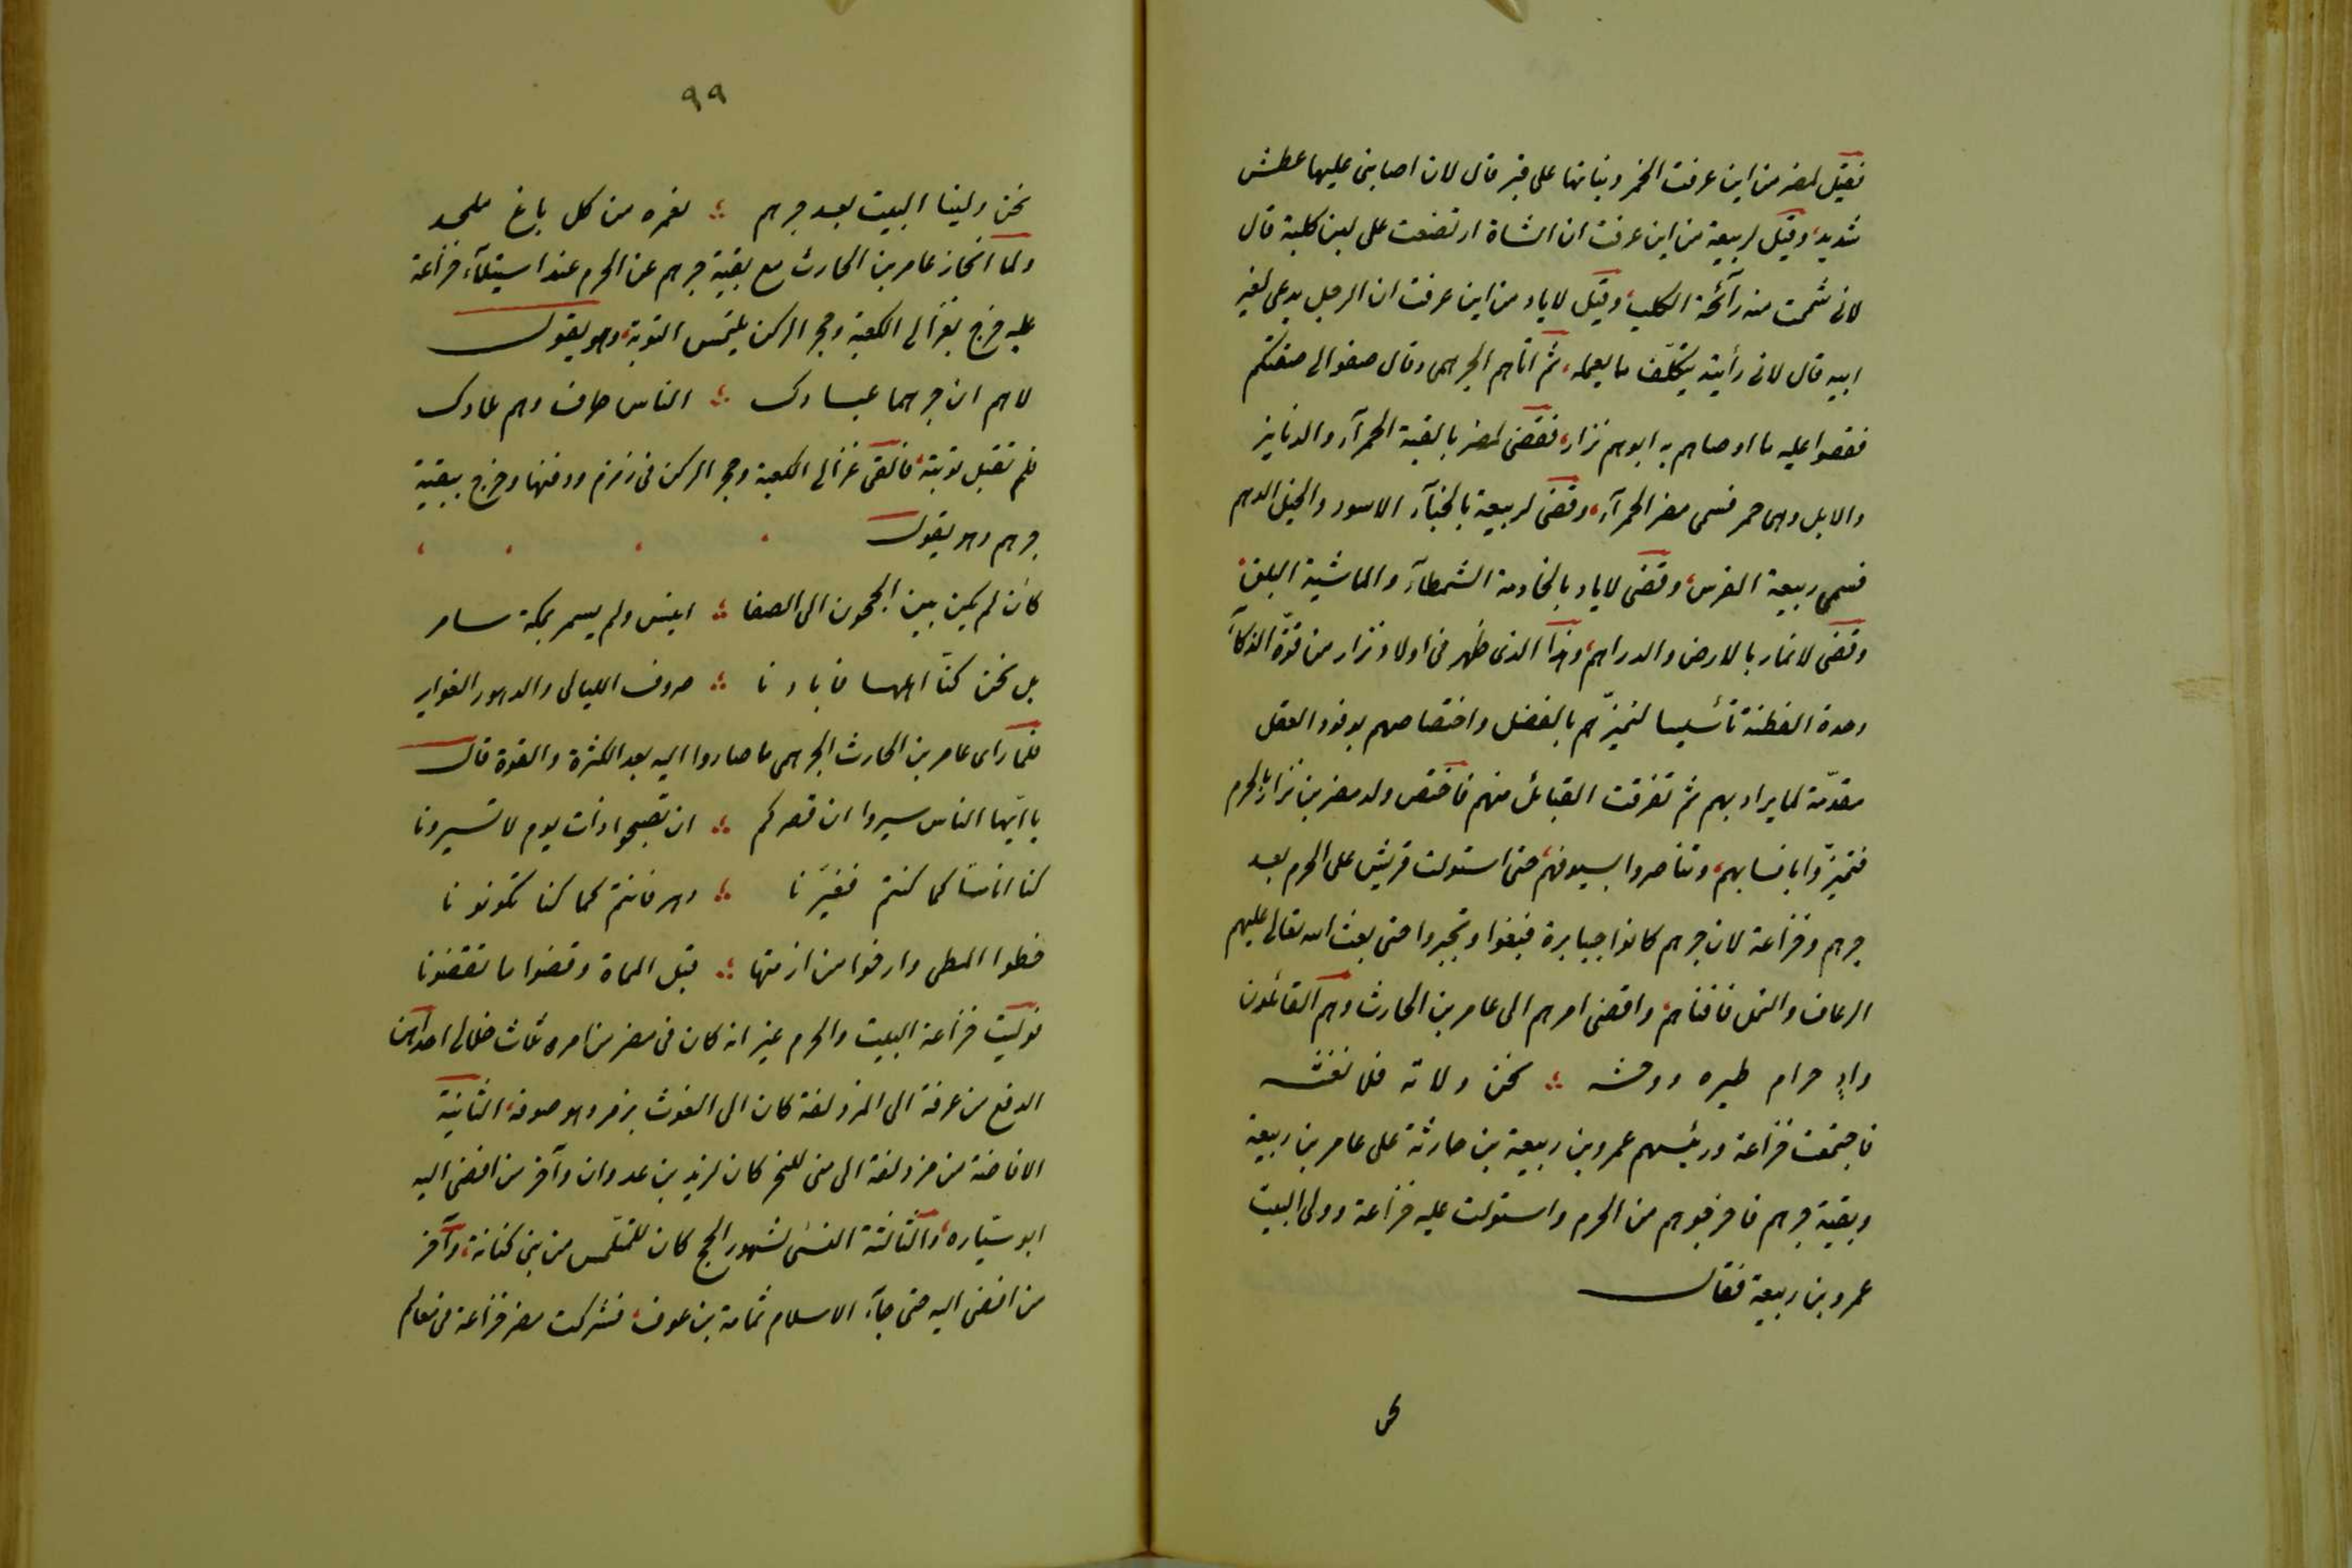 فقيل لمضر من اين عرفت الخمر ونباتها على قبر قال لان اصابنى عليها عطش
شديد، وقيل لربيعة من اين عرفت ان الشاة ارتضعت على لبن كلبة قال
لانى شممت منه رآئحة الكلب، وقيل لاياد من اين عرفت ان الرجل يدعى لغير
ابيه قال لانى رأيته يتكلّف ما يعمله، ثم اتاهم الجرهمى وقال صفوا الى صفتكم
فقصوا عليه ما اوصاهم به ابوهم نزار، فقضى لمضر بالقبة الحمرآء والدنانير
والابل وهى حمر فسمى مضر الحمرآء، وقضى لربيعة بالخبآء الاسود والخيل الدهم
فسمى ربيعة الفرس، وقضى لاياد بالخادمة الشمطآء والماشية البلق،
وقضى لانمار بالارض والدراهم، وهذا الذى ظهر فى اولاد نزار من قوّة الذكآء
وحدة الفطنة تأسيسا لتميّزهم بالفضل واختصاصهم بوفود العقل
مقدّمة لما يراد بهم ثم تفرقت القبائل منهم فاختص ولد مضر بن نزار بالحرم
فتميزّوا بانسابهم، وتناصروا بسيوفهم، حتى استولت قريش على الحرم بعد
جرهم وخزاعة لان جرهم كانوا جبابرة فبغوا وتجبروا حتى بعث الله تعالى عليهم
الرعاف والنمل فافناهم، وافضى امرهم الى عامر بن الحارث وهم القائلون
وادٍ حرام طيره ووحشه ؞ نحن ولاته فلا نغشه
فاجتمعت خزاعة ورئيسهم عمرو بن ربيعة بن حارثة على عامر بن ربيعة
وبقية جرهم فاخرجوهم من الحرم واستولت عليه خزاعة وولى البيت
عمرو بن ربيعة فقال
نحن
٩٩
نحن ولينا البيت بعد جرهم ؞ نعمره من كل باغ ملحد
ولما انحاز عامر بن الحارث مع بقية جرهم عن الحرم عند استيلآء خزاعة
عليه خرج بغزالى الكعبة وحجر الركن يلتمس التوبة، وهو يقول
لاهم ان جرهما عبادك ؞ الناس طراف وهم تلادك
فلم تقبل توبته، فالقى غزالى الكعبة وحجر الركن فى زمزم ودفنها وخرج ببقية
جرهم وهو يقول
كان لم يكن بين الحجون الى الصفا ؞ انيس ولم يسمر بمكة سامر
بل نحن كنّا اهلها فابادنا ؞ صروف الليالى والدهور الغواير
فلما رأى عامر بن الحارث الجرهمى ما صاروا اليه بعد الكثرة والقوة قال
يا ايّها الناس سيروا ان قصركم ؞ ان تصبحوا ذات يوم لا تسيرونا
كنا اناسا كما كنتم فغيّرنا ؞ دهر فانتم كما كنا تكونونا
حطوا المطى وارخوا من ازمتها ؞ قبل المماة وقضوا ما تقضونا
فوليت خزاعة البيت والحرم غير انه كان فى مضر من امره ثلاث خلال احداهن
الدفع من عرفة الى المزدلفة كان الى الغوث بن مر وهو صوفة، الثانية
الافاضة من مزدلفة الى منى للنحر كان لزيد بن عدوان وآخر من افضى اليه
ابو سيّاره، والثالثة النسئ لشهور الحج كان للمتلمس من بنى كنانة، وآخر
من افضى اليه حتى جآء الاسلام ثمامة بن عوف، فشركت مضر خزاعة فى معالم